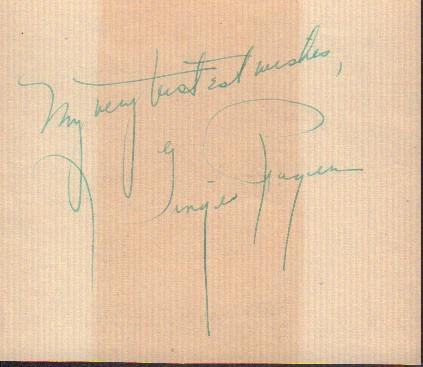 My very bestest wishes,
Ginger Rogers